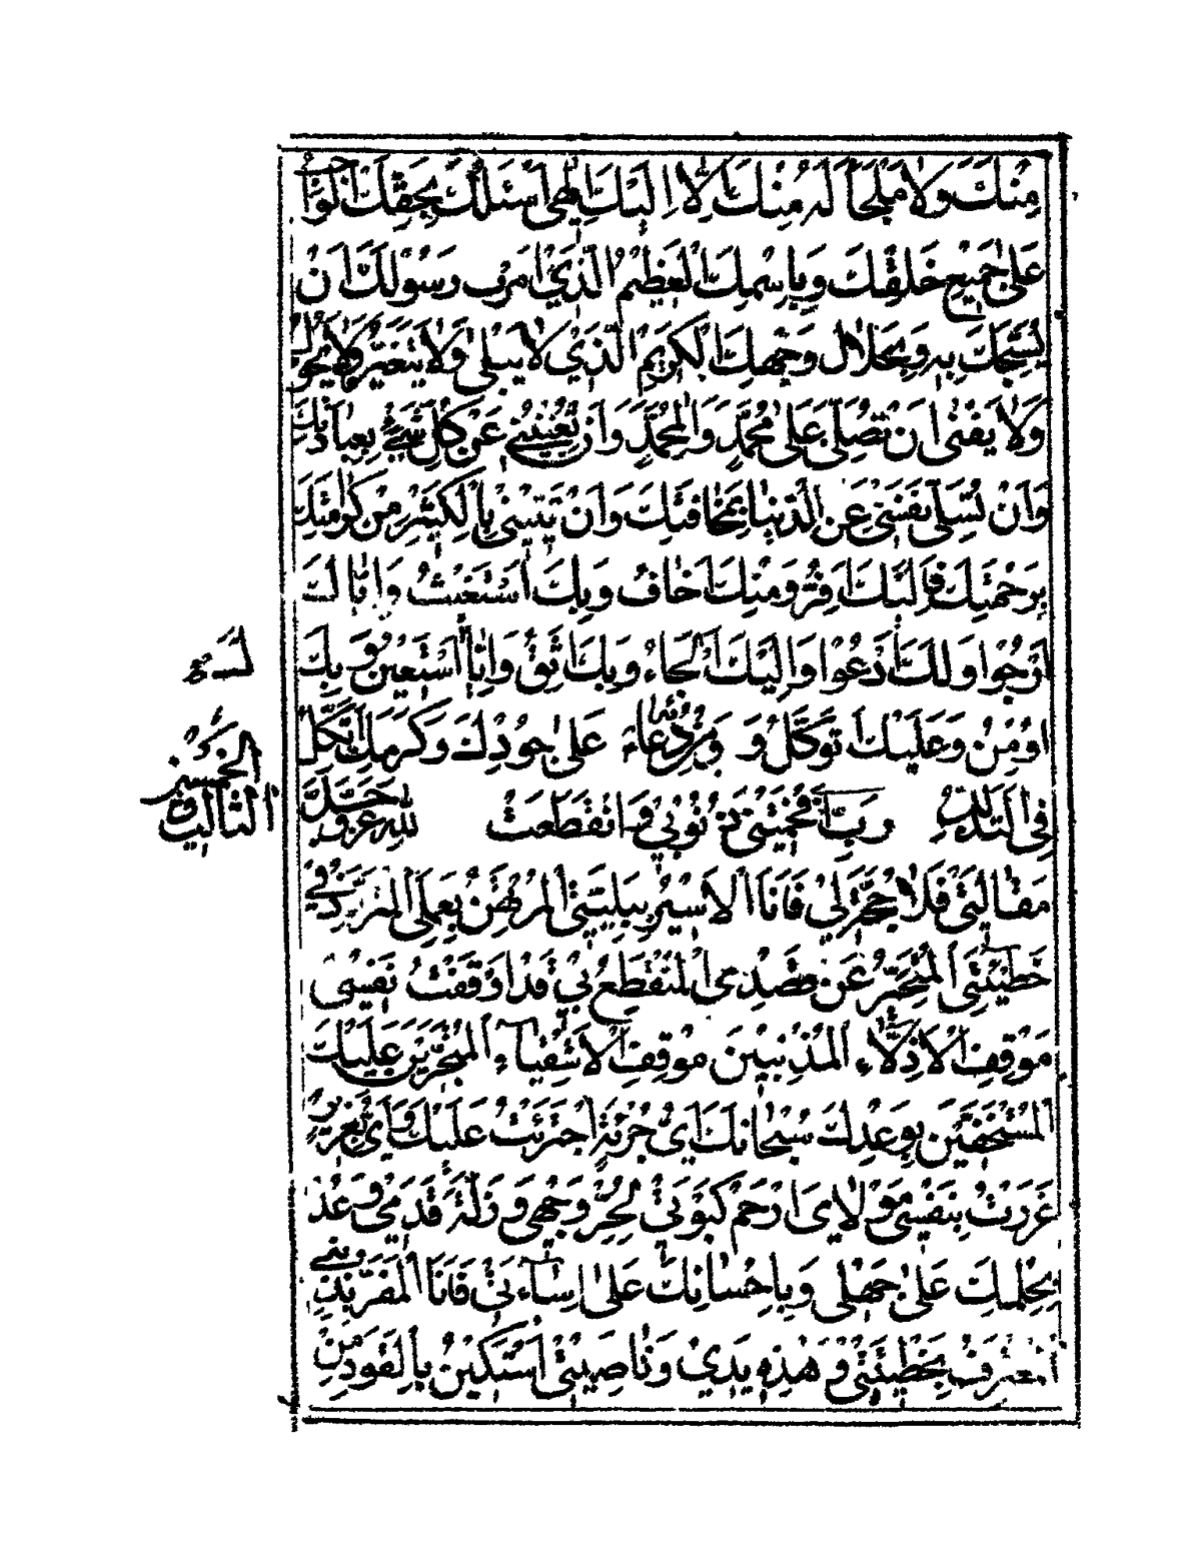 مِنْكَ وَلَا مَلْجَأَ لَهُ مِنْكَ اِلَّا اِلَيْكَ اِلٰهِي اَسْئَلُكَ بِحَقِّكَ الْوَاجِبِ
عَلٰى جَمِيْعِ خَلْقِكَ وَبِاِسْمِكَ الْعَظِيْمِ الَّذِيْ اَمَرْتَ رَسُوْلَكَ اَنْ
يُسَبِّحَكَ بِهِ وَبِجَلَالِ وَجْهِكَ الْكَرِيْمِ الَّذِيْ لَا يَبْلٰى وَلَا يَتَغَيَّرُ وَلَا يَحُوْلُ
وَلَا يَفْنٰى اَنْ تُصَلِّيَ عَلٰى مُحَمَّدٍ وَاٰلِ مُحَمَّدٍ وَاَنْ تُغْنِيَنِيْ عَنْ كُلِّ شَيْءٍ بِعِبَادَتِكَ
وَاَنْ تُسَلِّيَ نَفْسِيْ عَنِ الدُّنْيَا بِمَخَافَتِكَ وَاَنْ تُثْنِيَنِيْ بِالْكَثِيْرِ مِنْ كَرَامَتِكَ
بِرَحْمَتِكَ فَاِلَيْكَ اَفِرُّ وَمِنْكَ اَخَافُ وَبِكَ اَسْتَغِيْثُ وَاِيَّاكَ
اَرْجُوْا وَلَكَ اَدْعُوْا وَاِلَيْكَ اَلْجَاءُ وَبِكَ اَثِقُ وَاِيَّاكَ اَسْتَعِيْنُ وَبِكَ
اُوْمِنُ وَعَلَيْكَ اَتَوَكَّلُ وَ عَلٰى جُوْدِكَ وَكَرَمِكَ اَتَّكِلُ
وَمِنْ دُعَاءِهِ
فِي التَّذَلُّلِ لِلّٰهِ عَزَّ وَجَلَّ
رَبِّ اَفْحَمَتْنِيْ ذُنُوْبِيْ وَانْقَطَعَتْ
مَقَالَتِيْ فَلَا حُجَّةَ لِيْ فَاَنَا الْاَسِيْرُ بِبَلِيَّتِيْ الْمُرْتَهَنُ بِعَمَلِي الْمُتَرَدِّدُ فِيْ
خَطِيْئَتِي الْمُتَحَيِّرُ عَنْ قَصْدِي الْمُنْقَطَعُ بِيْ قَدْ اَوْقَفْتُ نَفْسِي
مَوْقِفَ الْاَذِلَّاءِ الْمُذْنِبِيْنَ مَوْقِفَ الْاَشْقِيَاءِ الْمُتَجَرِّيْنَ عَلَيْكَ
الْمُسْتَخِفِّيْنَ بِوَعْدِكَ سُبْحَانَكَ اَيَّ جُرْئَةٍ اجْتَرَئْتُ عَلَيْكَ وَاَيَّ تَغْرِيْرٍ
غَرَرْتُ بِنَفْسِيْ مَوْلَايَ ارْحَمْ كَبْوَتِيْ لِحُرِّ وَجْهِيْ وَزَلَّةَ قَدَمِيْ وَعُدْ
بِحِلْمِكَ عَلٰى جَهْلِي وَبِاِحْسَانِكَ عَلٰى اِسَآءَتِيْ فَاَنَا الْمُقِرُّ بِذَنْبِيْ
الْمُعْتَرِفُ بِخَطِيْئَتِيْ وَهٰذِهِ يَدِيْ وَنَاصِيَتِيْ اَسْتَكِيْنُ بِالْقَوَدِ مِنْ
الثالث
الخمسون